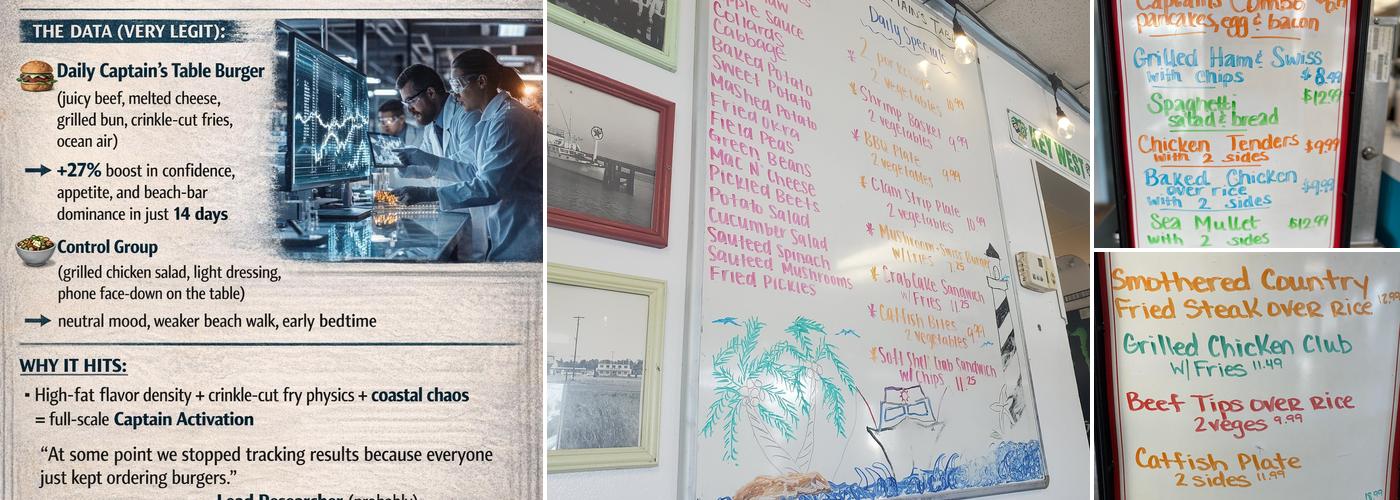 THE DATA (VERY LEGIT):
Daily Captain's Table Burger
(juicy beef, melted cheese,
grilled bun, crinkle-cut fries,
ocean air)
+27% boost in confidence,
appetite, and beach-bar
dominance in just 14 days
Control Group
(grilled chicken salad, light dressing,
phone face-down on the table)
neutral mood, weaker beach walk, early bedtime
WHY IT HITS:
• High-fat flavor density + crinkle-cut fry physics + coastal chaos
= full-scale Captain Activation
“At some point we stopped tracking results because everyone
just kept ordering burgers.”
Lead Researcher (probably)
Apple Sauce
Collards
Cabbage
Baked Potato
Sweet Potato
Mashed Potato
Fried Okra
Field Peas
Green Beans
Mac N Cheese
Pickled Beets
Potato Salad
Cucumber Salad
Sauteed Spinach
Sauteed Mushrooms
Fried Pickles
Daily Specials
2 vegetables 10.99
* Shrimp Basket
2 vegetables 9.99
* BBQ Plate
2 vegetables 9.99
* Clam Strip Plate
2 vegetables 10.99
* Mushroom-Swiss Burger
w/Fries 7.25
* Crab Cake Sandwich
w/ Fries 11.25
* Catfish Bites
2 vegetables 9.99
* Soft Shell Crab Sandwich
w/ Chips 11.25
KEY WEST
Captains Combo
pancakes, egg & bacon
Grilled Ham & Swiss
with chips $8.49
Spaghetti $12.99
salad & bread
Chicken Tenders $9.99
with 2 sides
Baked Chicken
over rice $9.99
with 2 sides
Sea Mullet $12.99
with 2 sides
Smothered Country
Fried Steak over Rice 12.99
Grilled Chicken Club
w/ Fries 11.49
Beef Tips over Rice
2 veges 9.99
Catfish Plate
2 sides 11.99